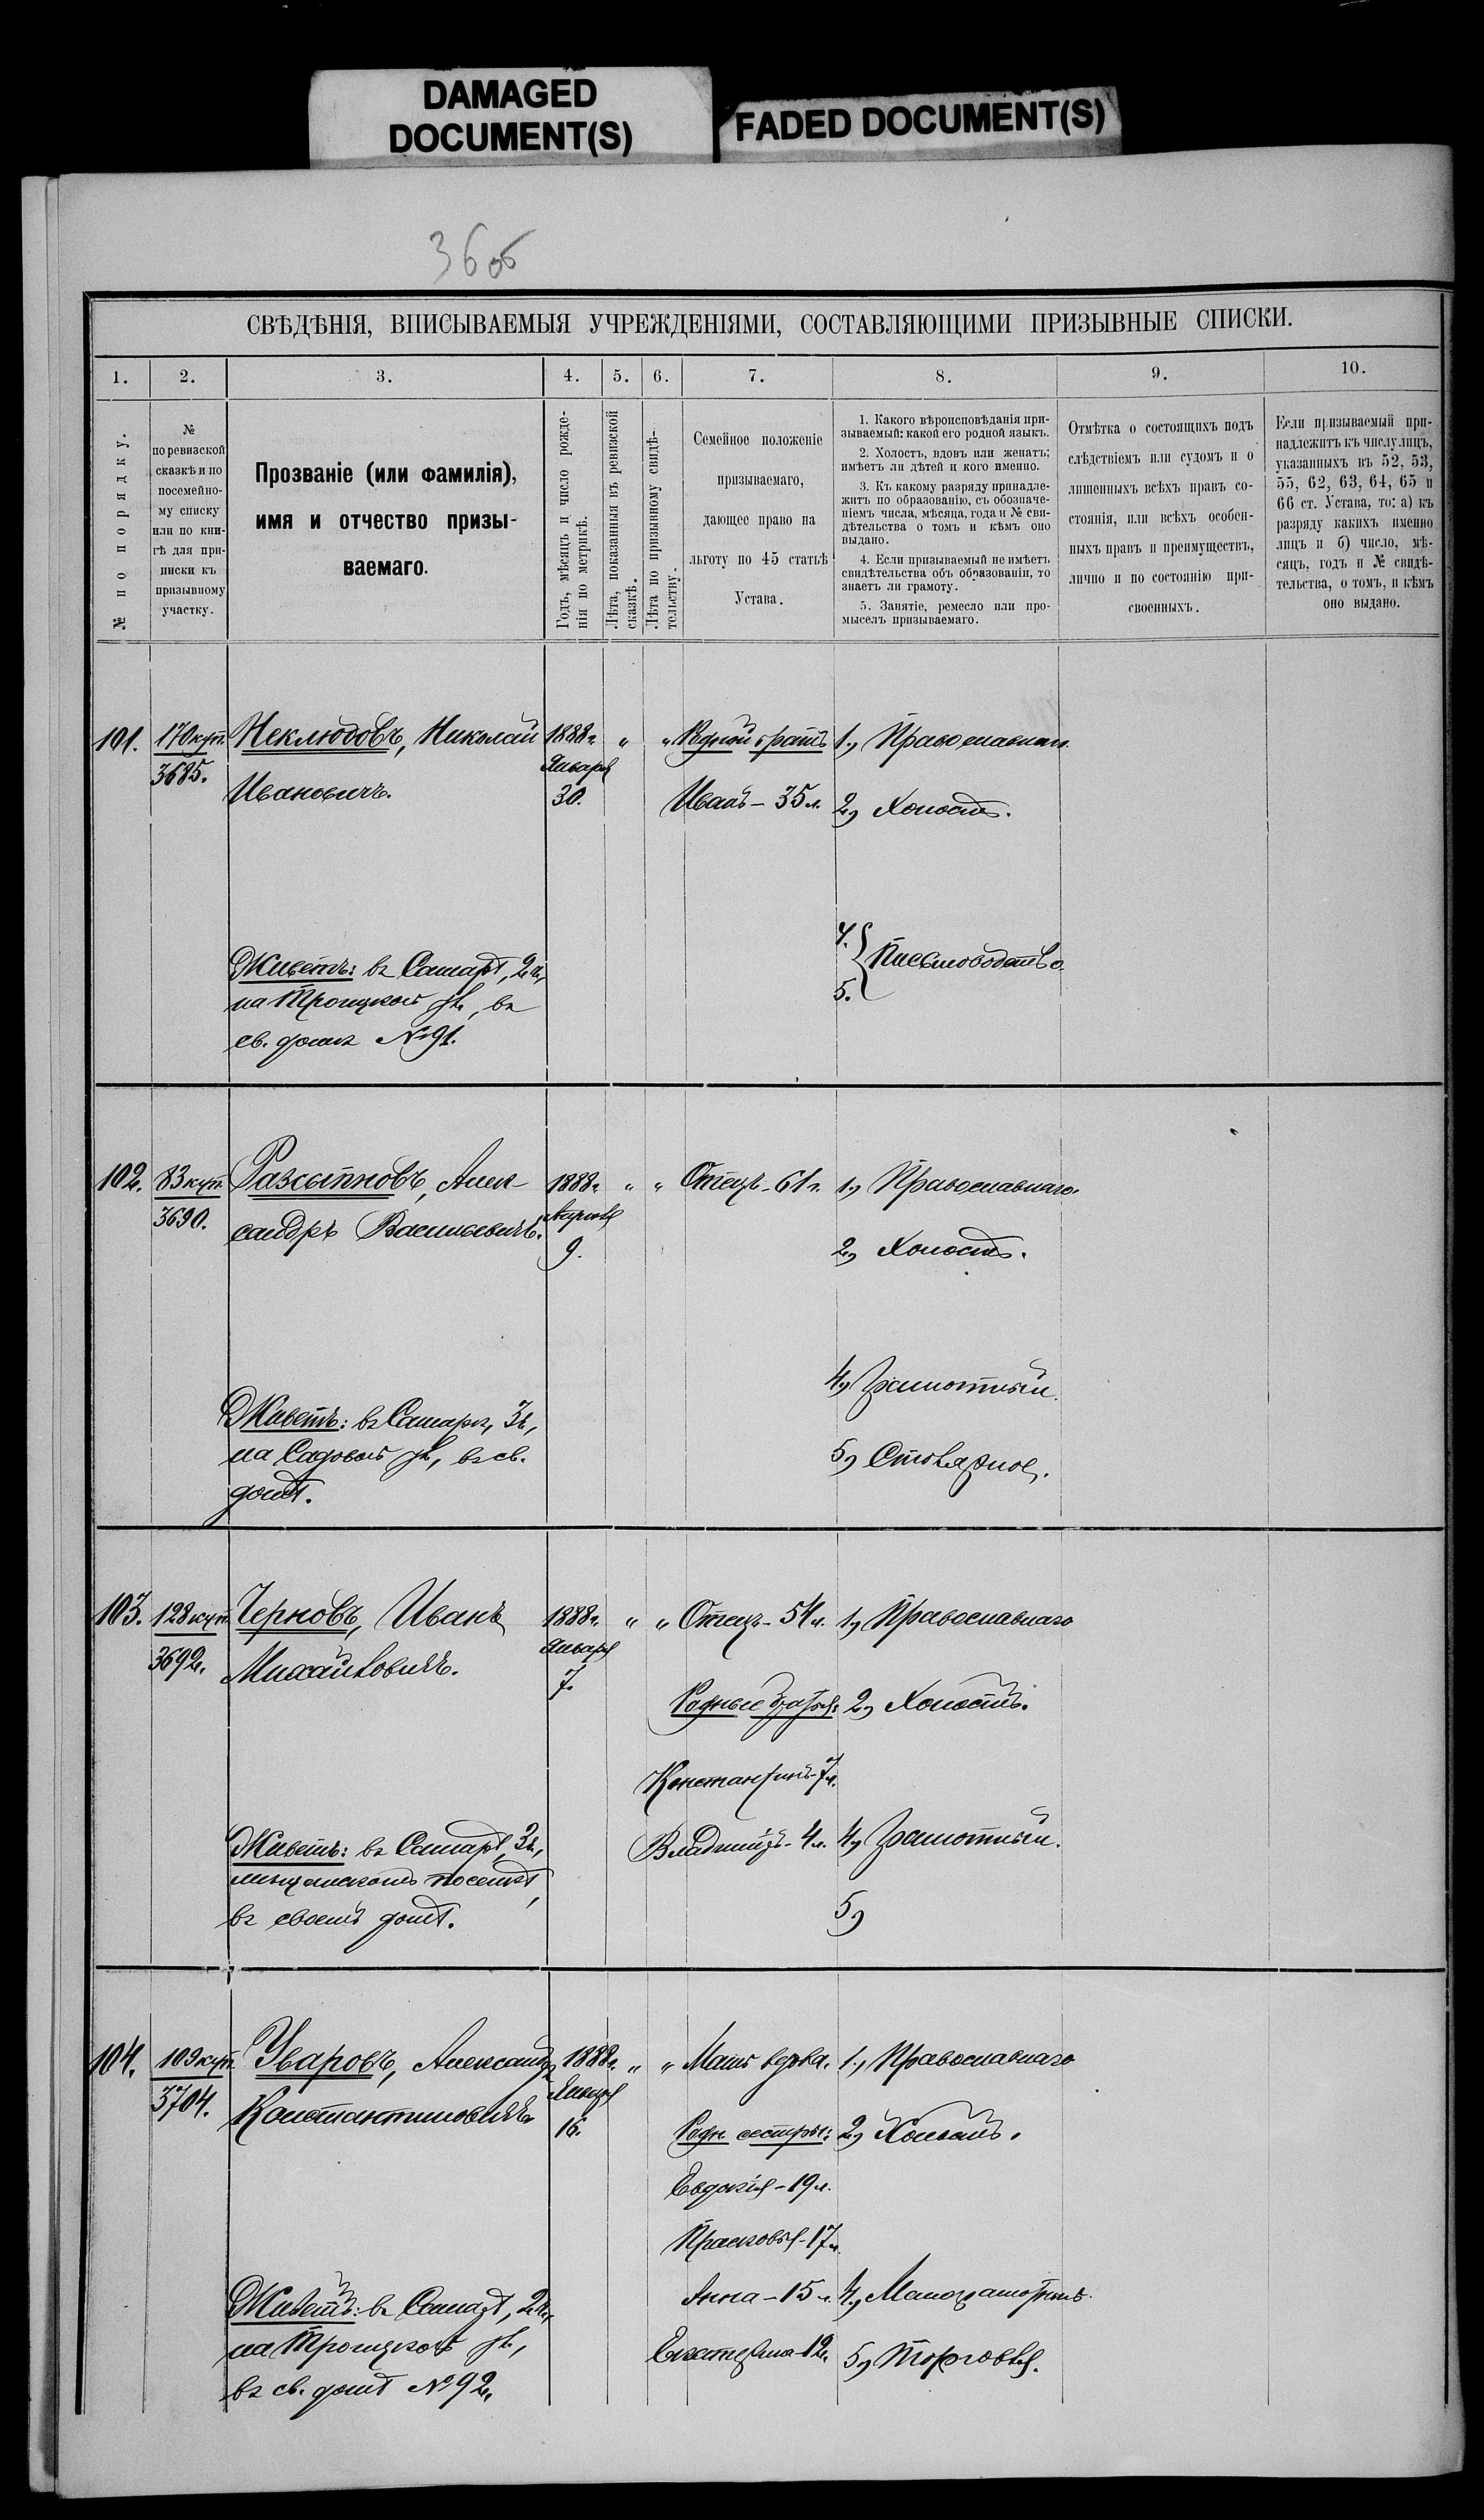 DAMAGED
DOCUMENT(S)
FADED DOCUMENT(S)
36 об
СВѢДѢНІЯ, ВПИСЫВАЕМЫЯ УЧРЕЖДЕНІЯМИ, СОСТАВЛЯЮЩИМИ ПРИЗЫВНЫЕ СПИСКИ.
1. 2. 3. 4. 5. 6. 7. 8. 9. 10.
№ по порядку.
№
по ревизской
сказкѣ и по
посемейно-
му списку
или по кни-
гѣ для при-
писки къ
призывному
участку.
Прозваніе (или фамилія),
имя и отчество призы-
ваемаго.
Годъ, мѣсяцъ и число рожде-
нія по метрикѣ.
Лѣта, показанныя въ ревизской
сказкѣ.
Лѣта по призывному свидѣ-
тельству.
Семейное положеніе
призываемаго,
дающее право на
льготу по 45 статьѣ
Устава.
1. Какого вѣроисповѣданія при-
зываемый: какой его родной языкъ.
2. Холостъ, вдовъ или женатъ:
имѣетъ ли дѣтей и кого именно.
3. Къ какому разряду принадле-
житъ по образованію, съ обозначе-
ніемъ числа, мѣсяца, года и № сви-
дѣтельства о томъ и кѣмъ оно
выдано.
4. Если призываемый не имѣетъ
свидѣтельства объ образованіи, то
знаетъ ли грамоту.
5. Занятіе, ремесло или про-
мыселъ призываемаго.
Отмѣтка о состоящихъ подъ
слѣдствіемъ или судомъ и о
лишенныхъ всѣхъ правъ со-
стоянія, или всѣхъ особен-
ныхъ правъ и преимуществъ,
лично и по состоянію при-
своенныхъ.
Если призываемый при-
надлежитъ къ числу лицъ,
указанныхъ въ 52, 53,
55, 62, 63, 64, 65 и
66 ст. Устава, то: а) къ
разряду какихъ именно
лицъ и б) число, мѣ-
сяцъ, годъ и № свидѣ-
тельства, о томъ, и кѣмъ
оно выдано.
101. 170 куп. Неклюдовъ, Николай 1888 г. " " Родной братъ 1, Православнаго
3685. Ивановичъ. Января
30. Иванъ - 35 л. 2, Холостъ.
4.
5. Письмоводство.
Живетъ: въ Самарѣ, 2 ч.,
на Троицкой ул., въ
св. домѣ № 91.
102. 83 куп. Разсыпновъ, Алек- 1888 г. " " Отецъ - 61 г. 1, Православнаго.
3690. сандръ Васильевичъ.
9. 2, Холостъ.
4, Грамотный.
Живетъ: въ Самарѣ, 3 ч.,
на Садовой ул., въ св.
домѣ.
5, Столярное.
103. 128 куп. Черновъ, Иванъ 1888 г. " " Отецъ - 54 л. 1, Православнаго
3692. Михайловичъ. Января
7. Родные братья: 2, Холостъ.
Константинъ - 7 л.
Владиміръ - 4 л. 4, Грамотный.
5,
Живетъ: въ Самарѣ, 3 ч.,
мѣщанскомъ поселкѣ,
въ своемъ домѣ.
104. 109 куп. Уваровъ, Александръ 1888 г. " " Мать вдова. 1, Православнаго
3704. Константиновичъ Января
16. Родн. сестры: 2, Холостъ.
Евдокія - 19 л.
Прасковья - 17 л.
Анна - 15 л. 4, Малограмотный.
Екатерина - 12 л. 5, Торговля.
Живетъ: въ Самарѣ, 2 ч.,
на Троицкой ул.,
въ св. домѣ № 92.